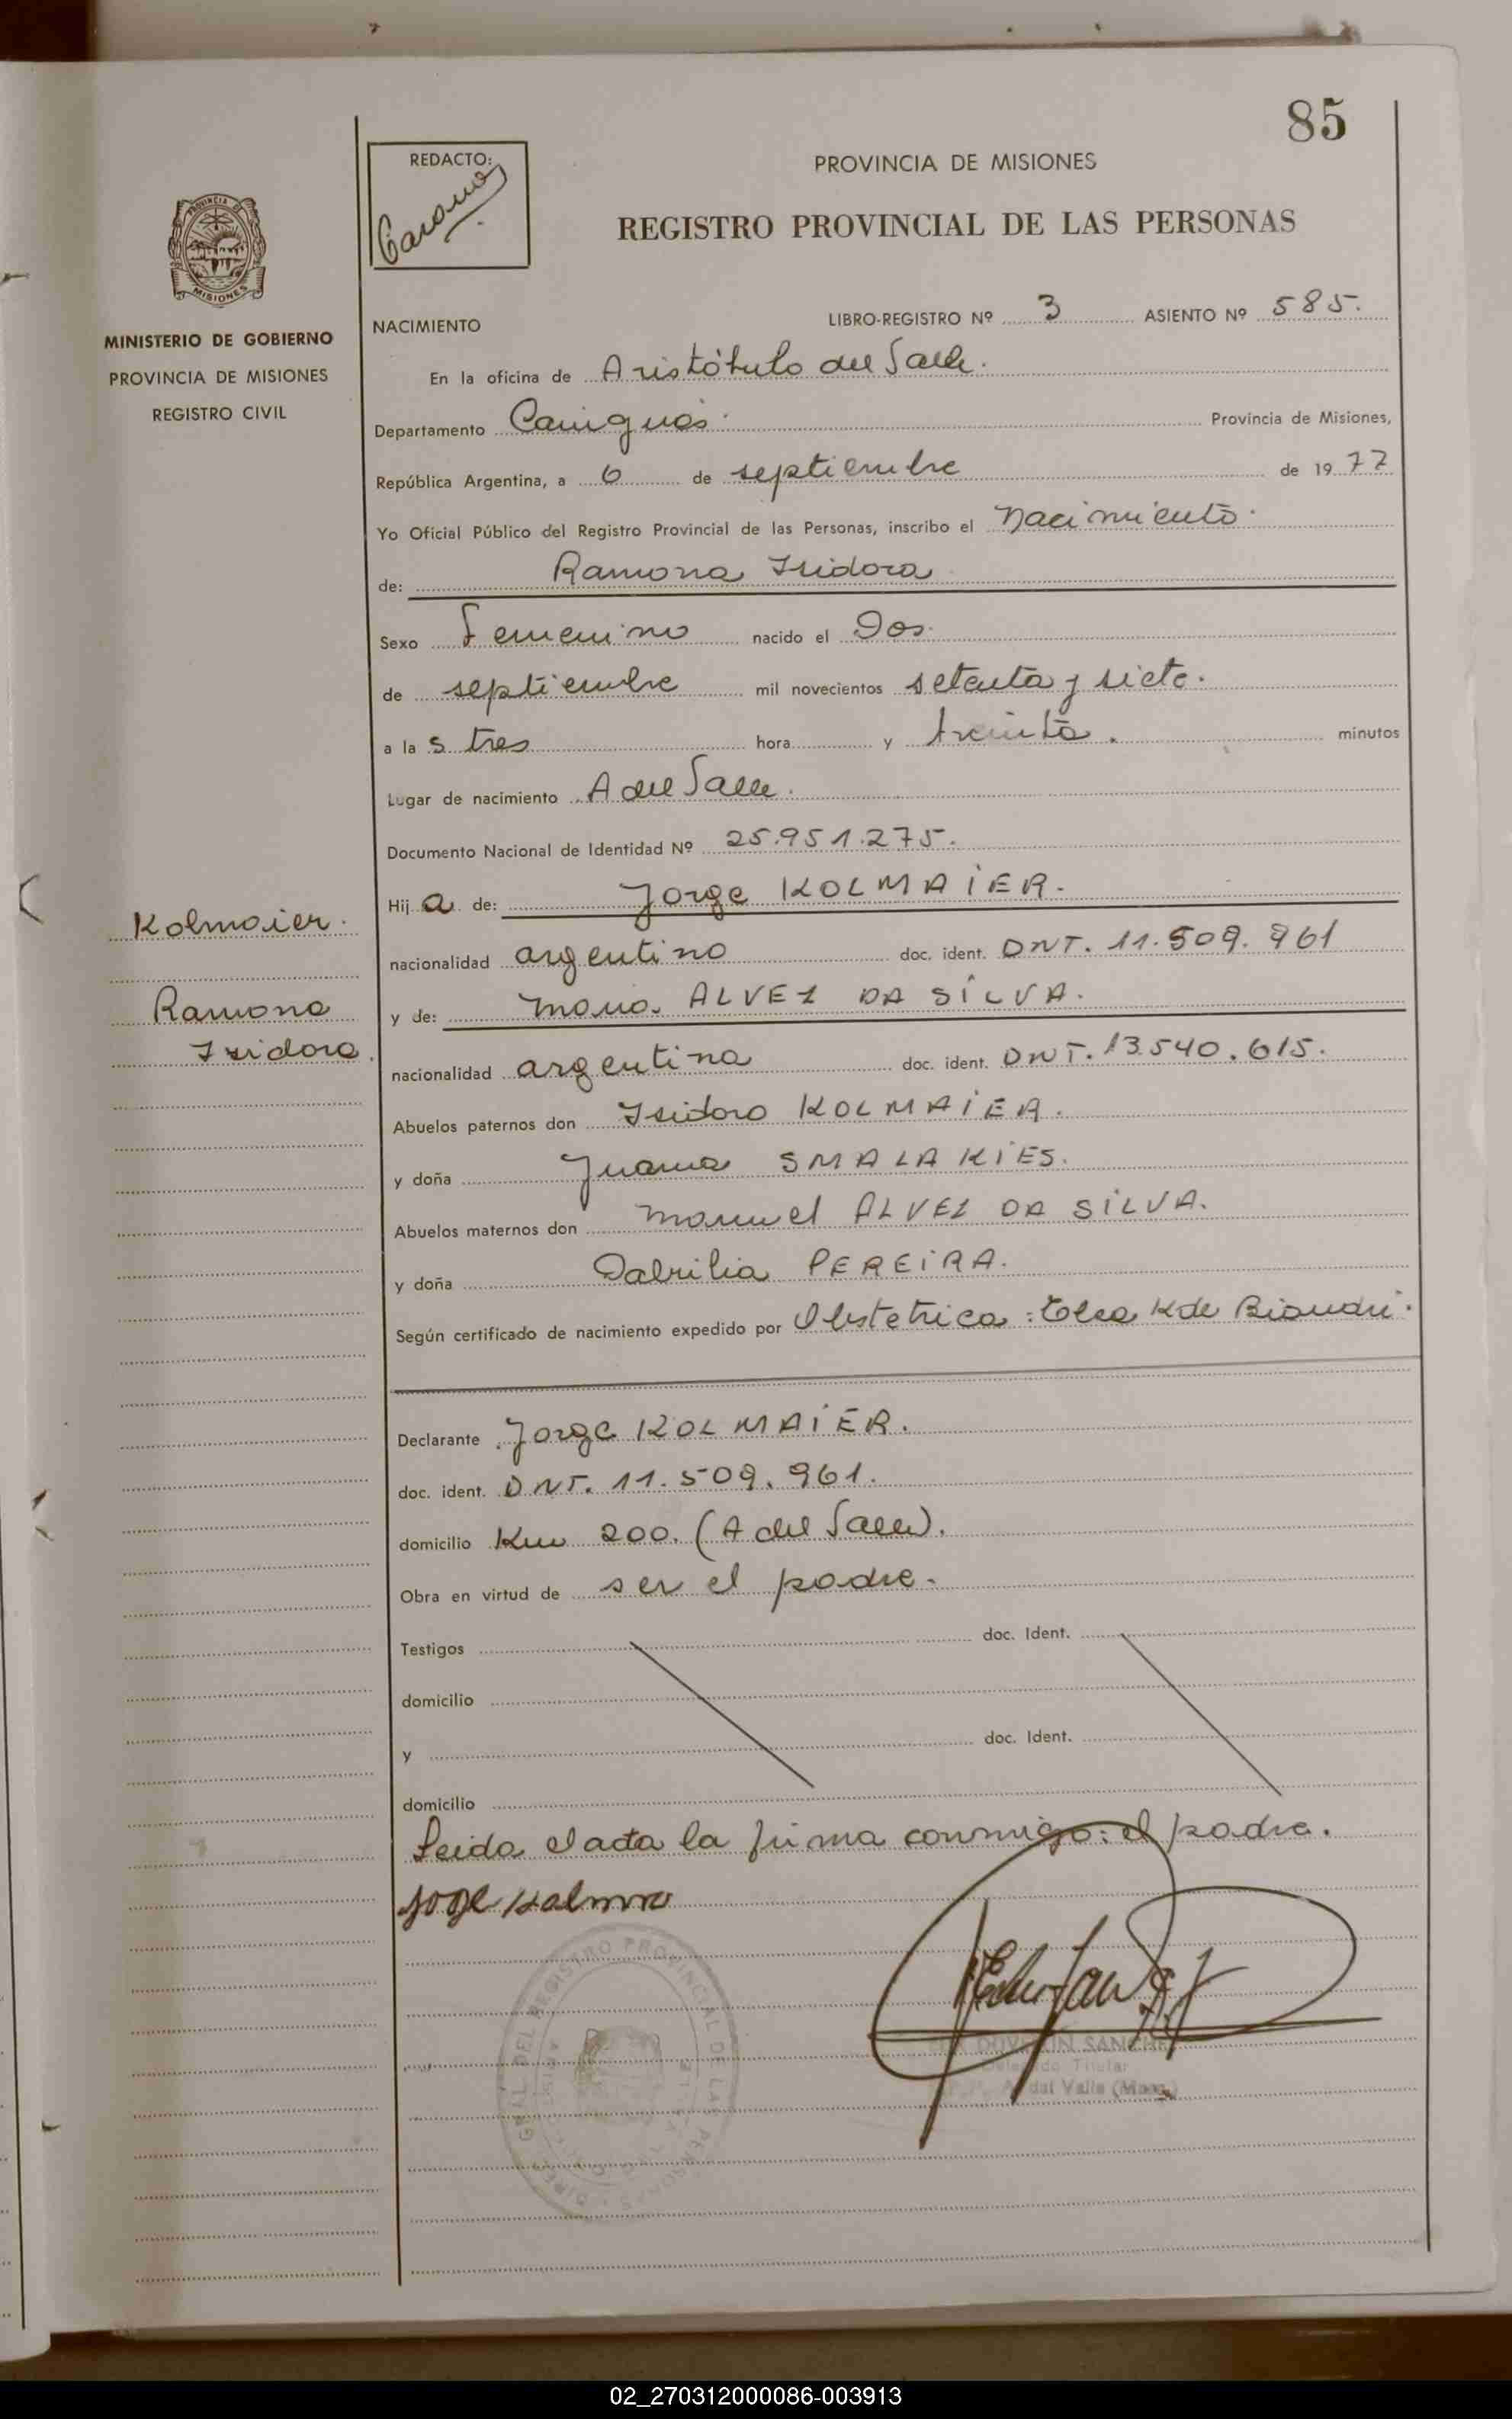 85
REDACTO:
PROVINCIA DE MISIONES
REGISTRO PROVINCIAL DE LAS PERSONAS
PROVINCIA DE
MISIONES
MINISTERIO DE GOBIERNO
PROVINCIA DE MISIONES
REGISTRO CIVIL
NACIMIENTO
LIBRO-REGISTRO Nº 3 ASIENTO Nº 585.
En la oficina de Aristótulo del Valle.
Departamento Cainguás. Provincia de Misiones,
República Argentina, a 6 de septiembre de 1977
Yo Oficial Público del Registro Provincial de las Personas, inscribo el nacimiento.
de: Ramona Isidora
Sexo Femenino nacido el Dos.
de septiembre mil novecientos setenta y siete.
a la s tres hora y treinta. minutos
Lugar de nacimiento A del Valle.
Documento Nacional de Identidad Nº 25.951.275.
Hij a de: Jorge KOLMAIER.
Kolmaier.
nacionalidad argentino doc. ident. DNI. 11.509.961
Ramona
y de: Maria. ALVEZ DA SILVA.
Isidora.
nacionalidad argentina doc. ident. DNI. 13.540.615.
Abuelos paternos don Isidoro KOLMAIER.
y doña Juana SMALAKIES.
Abuelos maternos don Manuel ALVEZ DA SILVA.
y doña PEREIRA.
Según certificado de nacimiento expedido por Obstetrica: K de
Declarante Jorge KOLMAIER.
doc. ident. DNI. 11.509.961.
domicilio Km 200. (A del Valle).
Obra en virtud de ser el padre.
Testigos doc. Ident.
domicilio
y doc. Ident.
domicilio
Leida el acta la firma conmigo: el padre.
DIREC. GRAL. DEL REGISTRO PROVINCIAL DE LAS PERSONAS
SANCHEZ
Delegado Titular
A. del Valle (Mnes.)
02_270312000086-003913